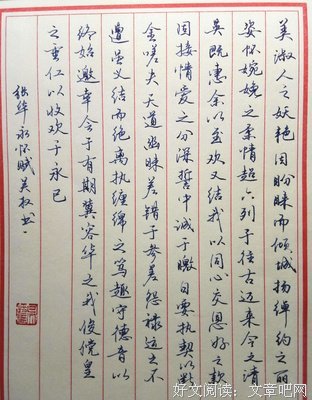 美淑人之妖艳因盼睐而倾城扬绰约之丽
姿怀婉娩之柔情超六列于往古迈来今之清
英既惠余以至欢又结我以同心交恩好之款
固接情爱之分深誓中诚于曒日要执契以断
金嗟夫天道幽昧差错于参差怨禄运之不
遭虽义结而绝离执缠绵之笃趣守德音以
终始邀幸会于有期冀容华之我俟傥皇
之垂仁以收欢于永已
张华永怀赋吴权书
好文阅读:文章吧网